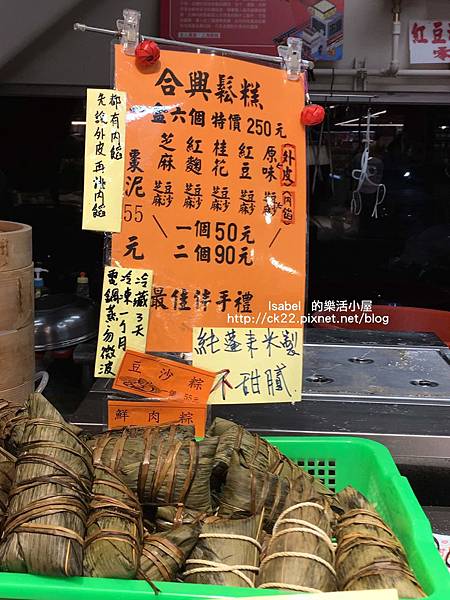 紅豆
合興鬆糕
盒六個 特價 250元
外皮 原味 紅豆 桂花 紅麴 芝麻
內餡 芝麻 豆沙 芝麻 豆沙 芝麻 豆沙 芝麻 豆沙
棗泥 55元
一個50元
二個90元
最佳伴手禮
都有內餡
先說外皮再選內餡
冷藏3天
冷凍一個月
電鍋蒸勿微波
純蓬萊米製
不甜膩
豆沙粽
鮮肉粽 55元
Isabel 的樂活小屋
http://ck22.pixnet.net/blog